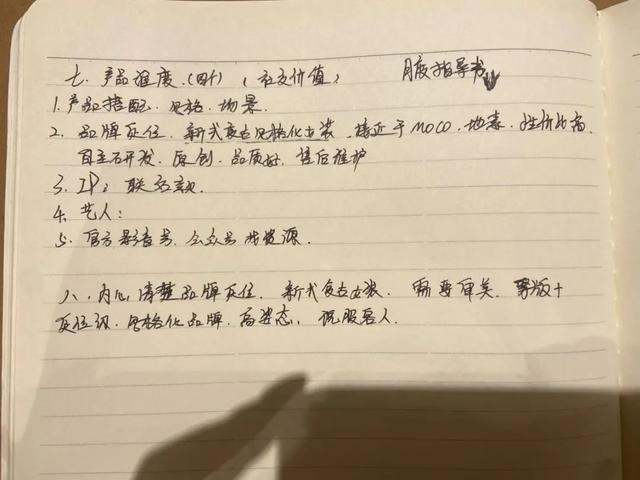 七、产品维度(四个)(社交价值) 月度指导书
1. 产品搭配、风格、场景.
2. 品牌定位、新式复古风格化女装、接近于MOCO、地素、性价比高、
自主研发、原创、品质好、售后维护
3. IP: 联名款.
4. 艺人:
5. 官方影音号、公众号 资源.
八、内心清楚品牌定位、新式复古女装、需要审美、
定位识、风格化品牌、高姿态、说服客人.